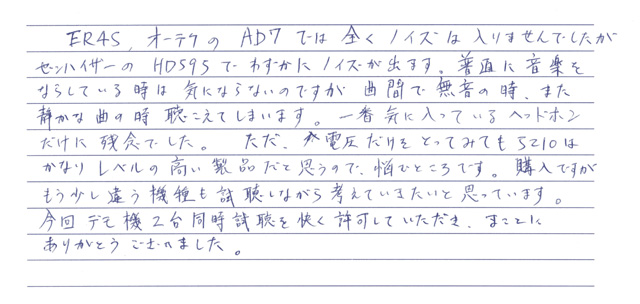 ER4S、オーテクのAD7では全くノイズは入りませんでしたが
ゼンハイザーのHD595でわずかにノイズが出ます。普通に音楽を
ならしている時は気にならないのですが曲間で無音の時、また
静かな曲の時聴こえてしまいます。一番気に入っているヘッドホン
だけに残念でした。ただ、電圧だけをとってみても5210は
かなりレベルの高い製品だと思うので、悩むところです。購入ですが
もう少し違う機種も試聴しながら考えていきたいと思っています。
今回デモ機2台同時試聴を快く許可していただき、まことに
ありがとうございました。